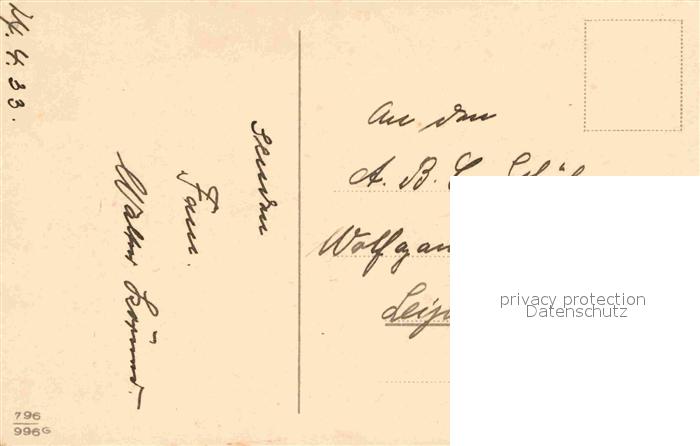 24.4.33.
senden
Fam.
Walter
An den
A. B. C.
Wolfgan
Leip
privacy protection
Datenschutz
796
996G